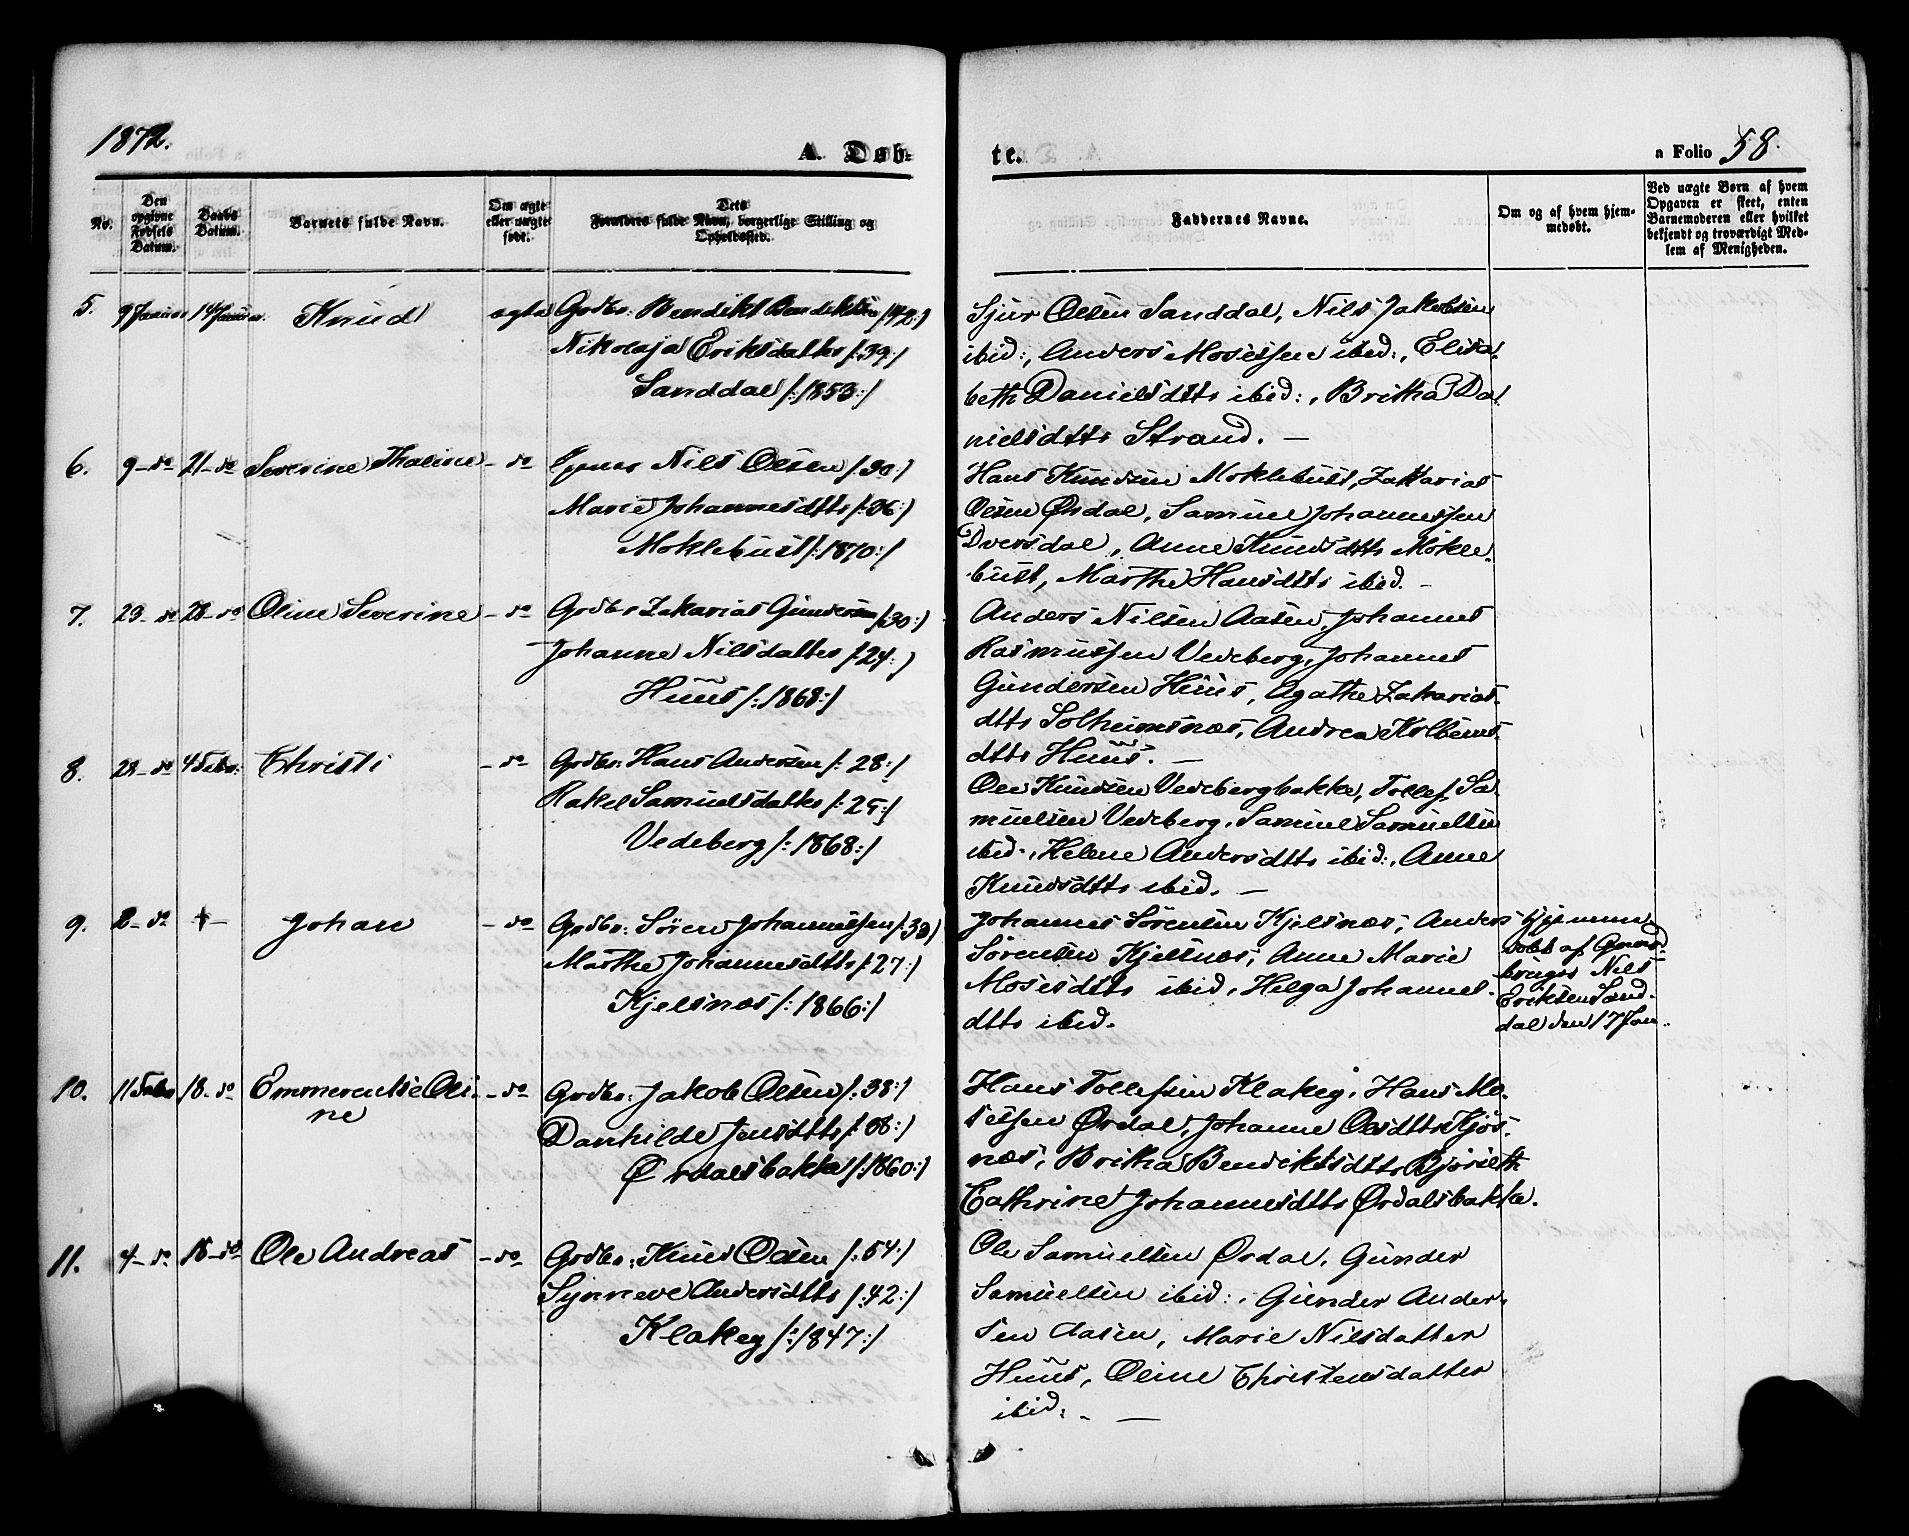 1872.
A. Døb-
te.
a Folio 58.
No.
Den opgivne Fødsels Datum.
Daabs Datum.
Barnets fulde Navn.
Om ægte eller uægte født.
Dets Forældres fulde Navn, borgerlige Stilling og Opholdssted.
Faddernes Navne.
Om og af hvem hjemmedøbt.
Ved uægte Børn af hvem Opgaven er skeet, enten Barnemoderen eller hvilket bekjendt og troværdigt Medlem af Menigheden.
5. 9 Januar 14 Januar Knud ægte Grdbr: Bendikt Bendiktsen /:42:/
Nikolaja Eriksdatter /:39:/
Sanddal /:1853:/
Sjur Olsen Sanddal, Nils Jakobsen
ibid:, Anders Mosessen ibid:, Elisa-
beth Danielsdtts ibid:, Britha Da-
nielsdtts Strand. —
6. 9 – do 21 – do Severine Thaline – do Nils Olsen /:30:/
Marie Johannesdtts /:36:/
Moklebust /:1870:/
Hans Knudsen Moklebust, Zakarias
Olsen Ørdal, Samuel Johannessen
Dversdal, Anne Knudsdtts Mokle-
bust, Marthe Hansdtts ibid. –
7. 23 – do 28 – do Oline Severine – do Grdbr Zakarias Gundersen /:30:/
Johanne Nilsdatter /:24:/
Huus /:1868:/
Anders Nilsen Aasen, Johannes
Rasmussen Vedeberg, Johannes
Gundersen Huus, Agathe Zakarias-
dtts Solheimsnæs, Andrea Kolbens-
dtts Huus. —
8. 28 – do 4 Febr: Christi – do Grdbr: Hans Andersen /: 28:/
Rakel Samuelsdatter /: 25:/
Vedeberg /: 1868:/
Ole Knudsen Vedebergbakke, Tollef Sa-
muelsen Vedeberg, Samuel Samuelsen
ibid., Helene Andersdtts ibid:, Anne
Knudsdtts ibid. —
9. 2 – do Johan – do Grdbr: Søren Johannessen /:39/
Marthe Johannesdtts /:27:/
Kjelsnæs /: 1866:/
Johannes Sørensen Kjelsnæs, Anders
Sørensen Kjelsnæs, Anne Marie
Mosesdtts ibid, Helga Johannes-
dtts ibid.
Hjemme-
døbt af Gaard-
bruger Nils
Eriksen Sand-
dal den 17 Jan.
10. 11 Febr 18 – do Emmerentse Oli- – do Grdbr: Jakob Olsen /: 38:/
ne
Danhilde Jensdtts /: 38:/
Ørdalsbakka /:1860:/
Hans Tollefsen Klakeg, Hans Mo-
sessen Ørdal, Johanne Olesdtts Kjøs-
næs, Britha Bendiktsdtts Bjørseth
Cathrine Johannesdtts Ørdalsbakka.
11. 4 – do 18 – do Ole Andreas – do Grdbr: Knud Olsen /: 54:/
Synneve Andersdtts /:42:/
Klakeg /:1847:/
Ole Samuelsen Ørdal, Gunder
Samuelsen ibid:, Gunder Ander-
sen Aasen, Marie Nilsdatter
Huus, Oline Christensdatter
ibid: . —